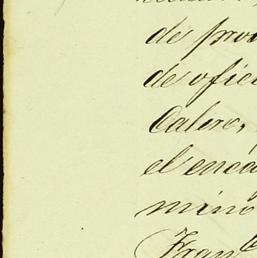 de pro
de ofic
Calero,
el enca
mino
Fran